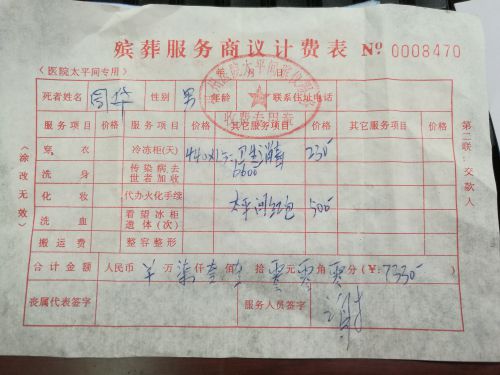 殡葬服务商议计费表 № 0008470
（医院太平间专用） 年 月 日
死者姓名 性别 男 年龄 联系住址电话
服务项目 价格 服务项目 价格 其它服务项目 价格 其它服务项目 价格
穿衣 冷冻柜(天) 卫生消毒 230
洗身 传染病去世者加收 6600
化妆 代办火化手续 太平间红包 500
洗血 看望冰柜遗体(次)
搬运费 整容整形
合计金额 人民币 万 柒仟 佰 拾 零元 零角 零分(￥: 7330
丧属代表签字 服务人员签字 谢
（涂改无效）
第二联：交款人
收费专用章